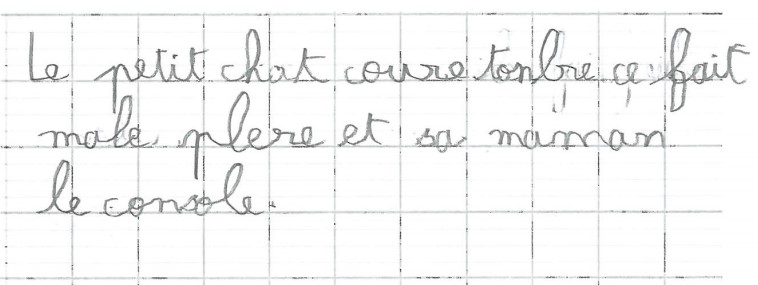 Le petit chat coure tonbre ce fait
male plere et sa maman
le console.